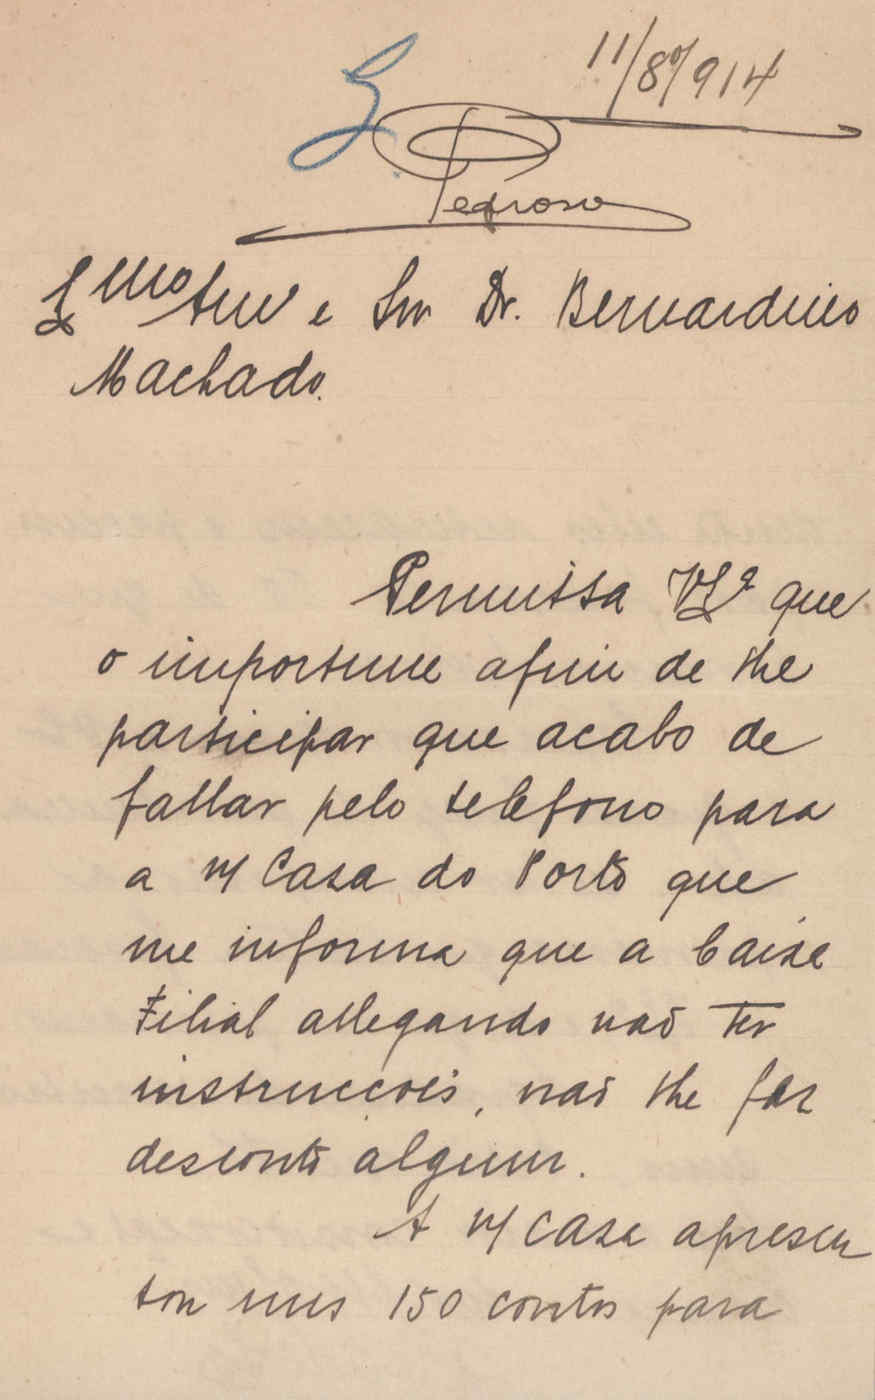 11/8º/914
Pedroso
Exmo Amo e Snr Dr. Bernardino
Machado.
Permitta VExª que
o importune afim de lhe
participar que acabo de
fallar pelo telefono para
a n/ Casa do Porto que
me informa que a Caixa
Filial allegando não ter
instrucções, não lhe faz
desconto algum.
A n/ casa apresen
tou uns 150 contos para